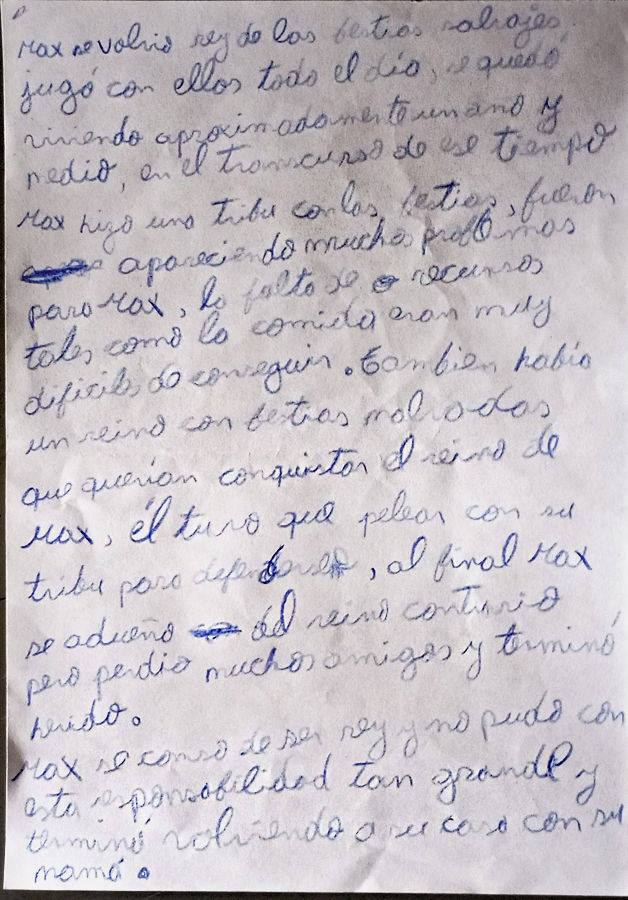 Max se volvio rey de las bestias salvajes,
jugó con ellos todo el día, se quedó
viviendo aproximadamente un ano y
medio, en el transcurso de ese tiempo
Max hizo una tribu con las bestias, fueron
apareciendo muchos problemas
para Max, la falta de recursos
tales como la comida eran muy
dificiles de conseguir. tambien había
un reino con bestias malvadas
que querian conquistar el reino de
Max, él tuvo que pelear con su
tribu para defenderse, al final Max
se adueño del reino contrario
pero perdio muchos amigos y terminó
herido.
Max se canso de ser rey y no pudo con
esta responsabilidad tan grande y
terminó volviendo a su casa con su
mamá.